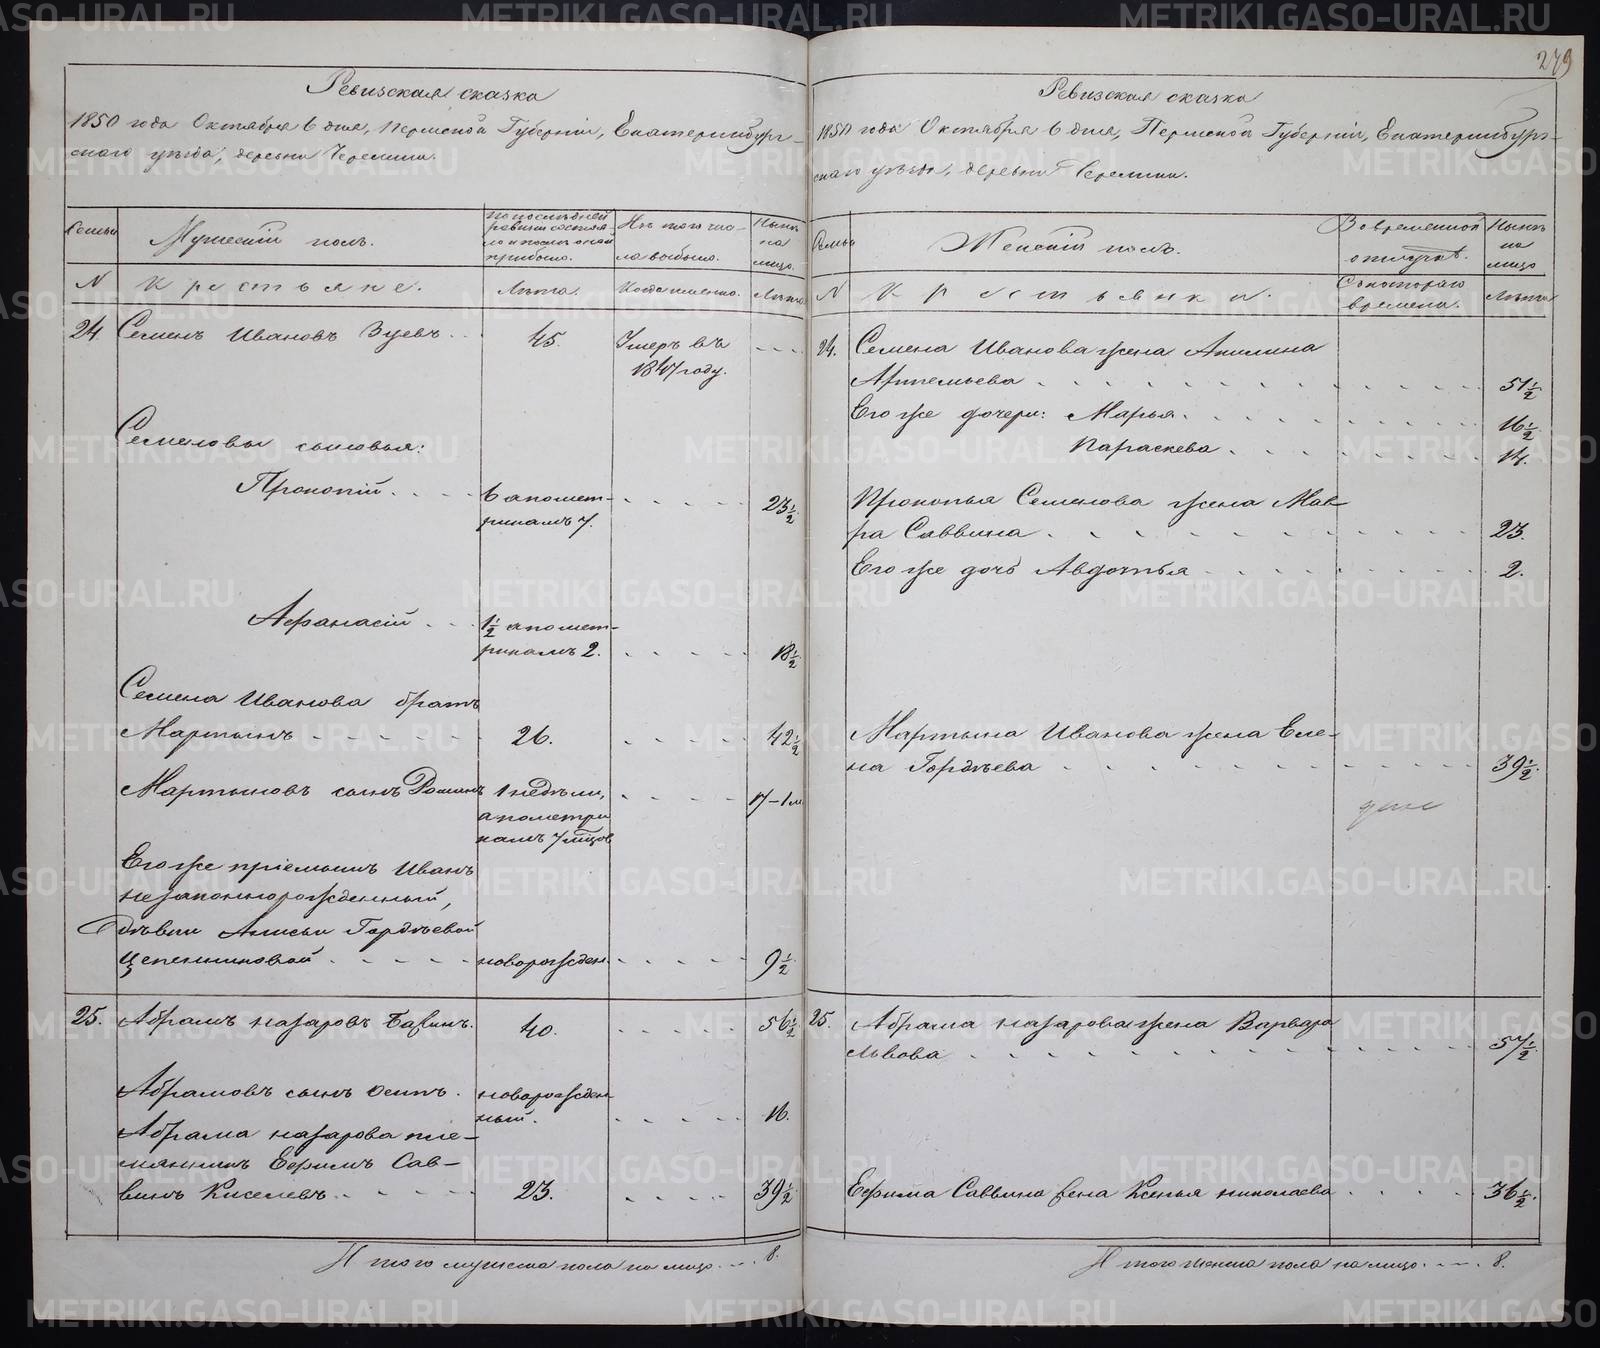 279
Ревизская сказка
1850 года Октября 6 дня, Пермской Губернiи, Екатеринбург-
скаго уѣзда, деревни Черемши.
Семьи
Мужескiй полъ.
По последней ревизiи состояло и после оной прибыло.
Изъ того числа выбыло.
Нынѣ на лицо.
N
Крестьяне.
Лѣта.
Когда именно.
Лѣта
24. Семенъ Ивановъ Зуевъ . . 45. Умеръ въ
1847 году.
Семеновы сыновья:
Прокопiй . . . . 6 а по мет- 23½
рикамъ 7.
Афанасiй . . . 1½ а по мет-
рикамъ 2. 18½
Семена Иванова братъ
Мартынъ 26. 42½
Мартыновъ сынъ Романъ 1 недѣли, 17-1 м
а по метри
камъ 7 мѣсцов
Его же прiемышъ Иванъ
незаконнорожденный,
Дѣвки Алисьи Гордѣевой
новорожден 9½
25. Абрамъ Назаровъ 40. 56½
Абрамовъ сынъ Осипъ . новорожден
ный. 16.
Абрама Назарова пле-
мянникъ Ефимъ Сав-
винъ Киселевъ 23. 39½
Итого мужеска пола на лицо . . . . 8.
Ревизская сказка
1850 года Октября 6 дня, Пермской Губернiи, Екатеринбург-
скаго уѣзда, деревни Черемши.
Семьи
Женскiй полъ.
Во временной отлучкѣ.
Нынѣ на лицо
N
Крестьянки.
Съ котораго времени.
Лѣта
24. Семена Иванова жена Акилина
Артемьева 51½
Его же дочери: Марья 16½
Параскева 14.
Прокопья Семенова жена Мав-
ра Саввина 23.
Его же дочь Авдотья 2.
Мартына Иванова жена Еле-
на Гордѣева 39½
25. Абрама Назарова жена Варвара
Львова 57½
Ефима Саввина жена Ксенья Николаева 36½.
Итого женска пола на лицо . . . . 8.
METRIKI.GASO-URAL.RU